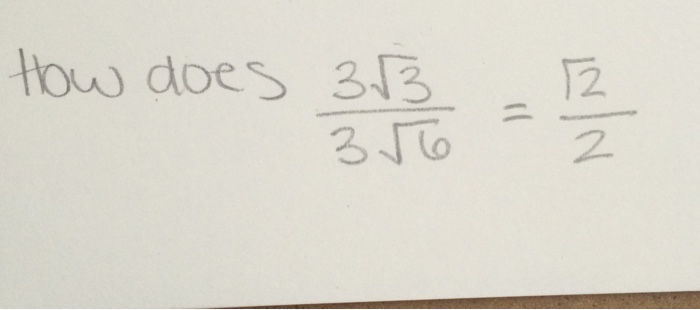 How does 3√3 / 3√6 = √2 / 2